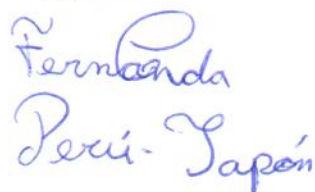 Fernanda
Perú-Japón